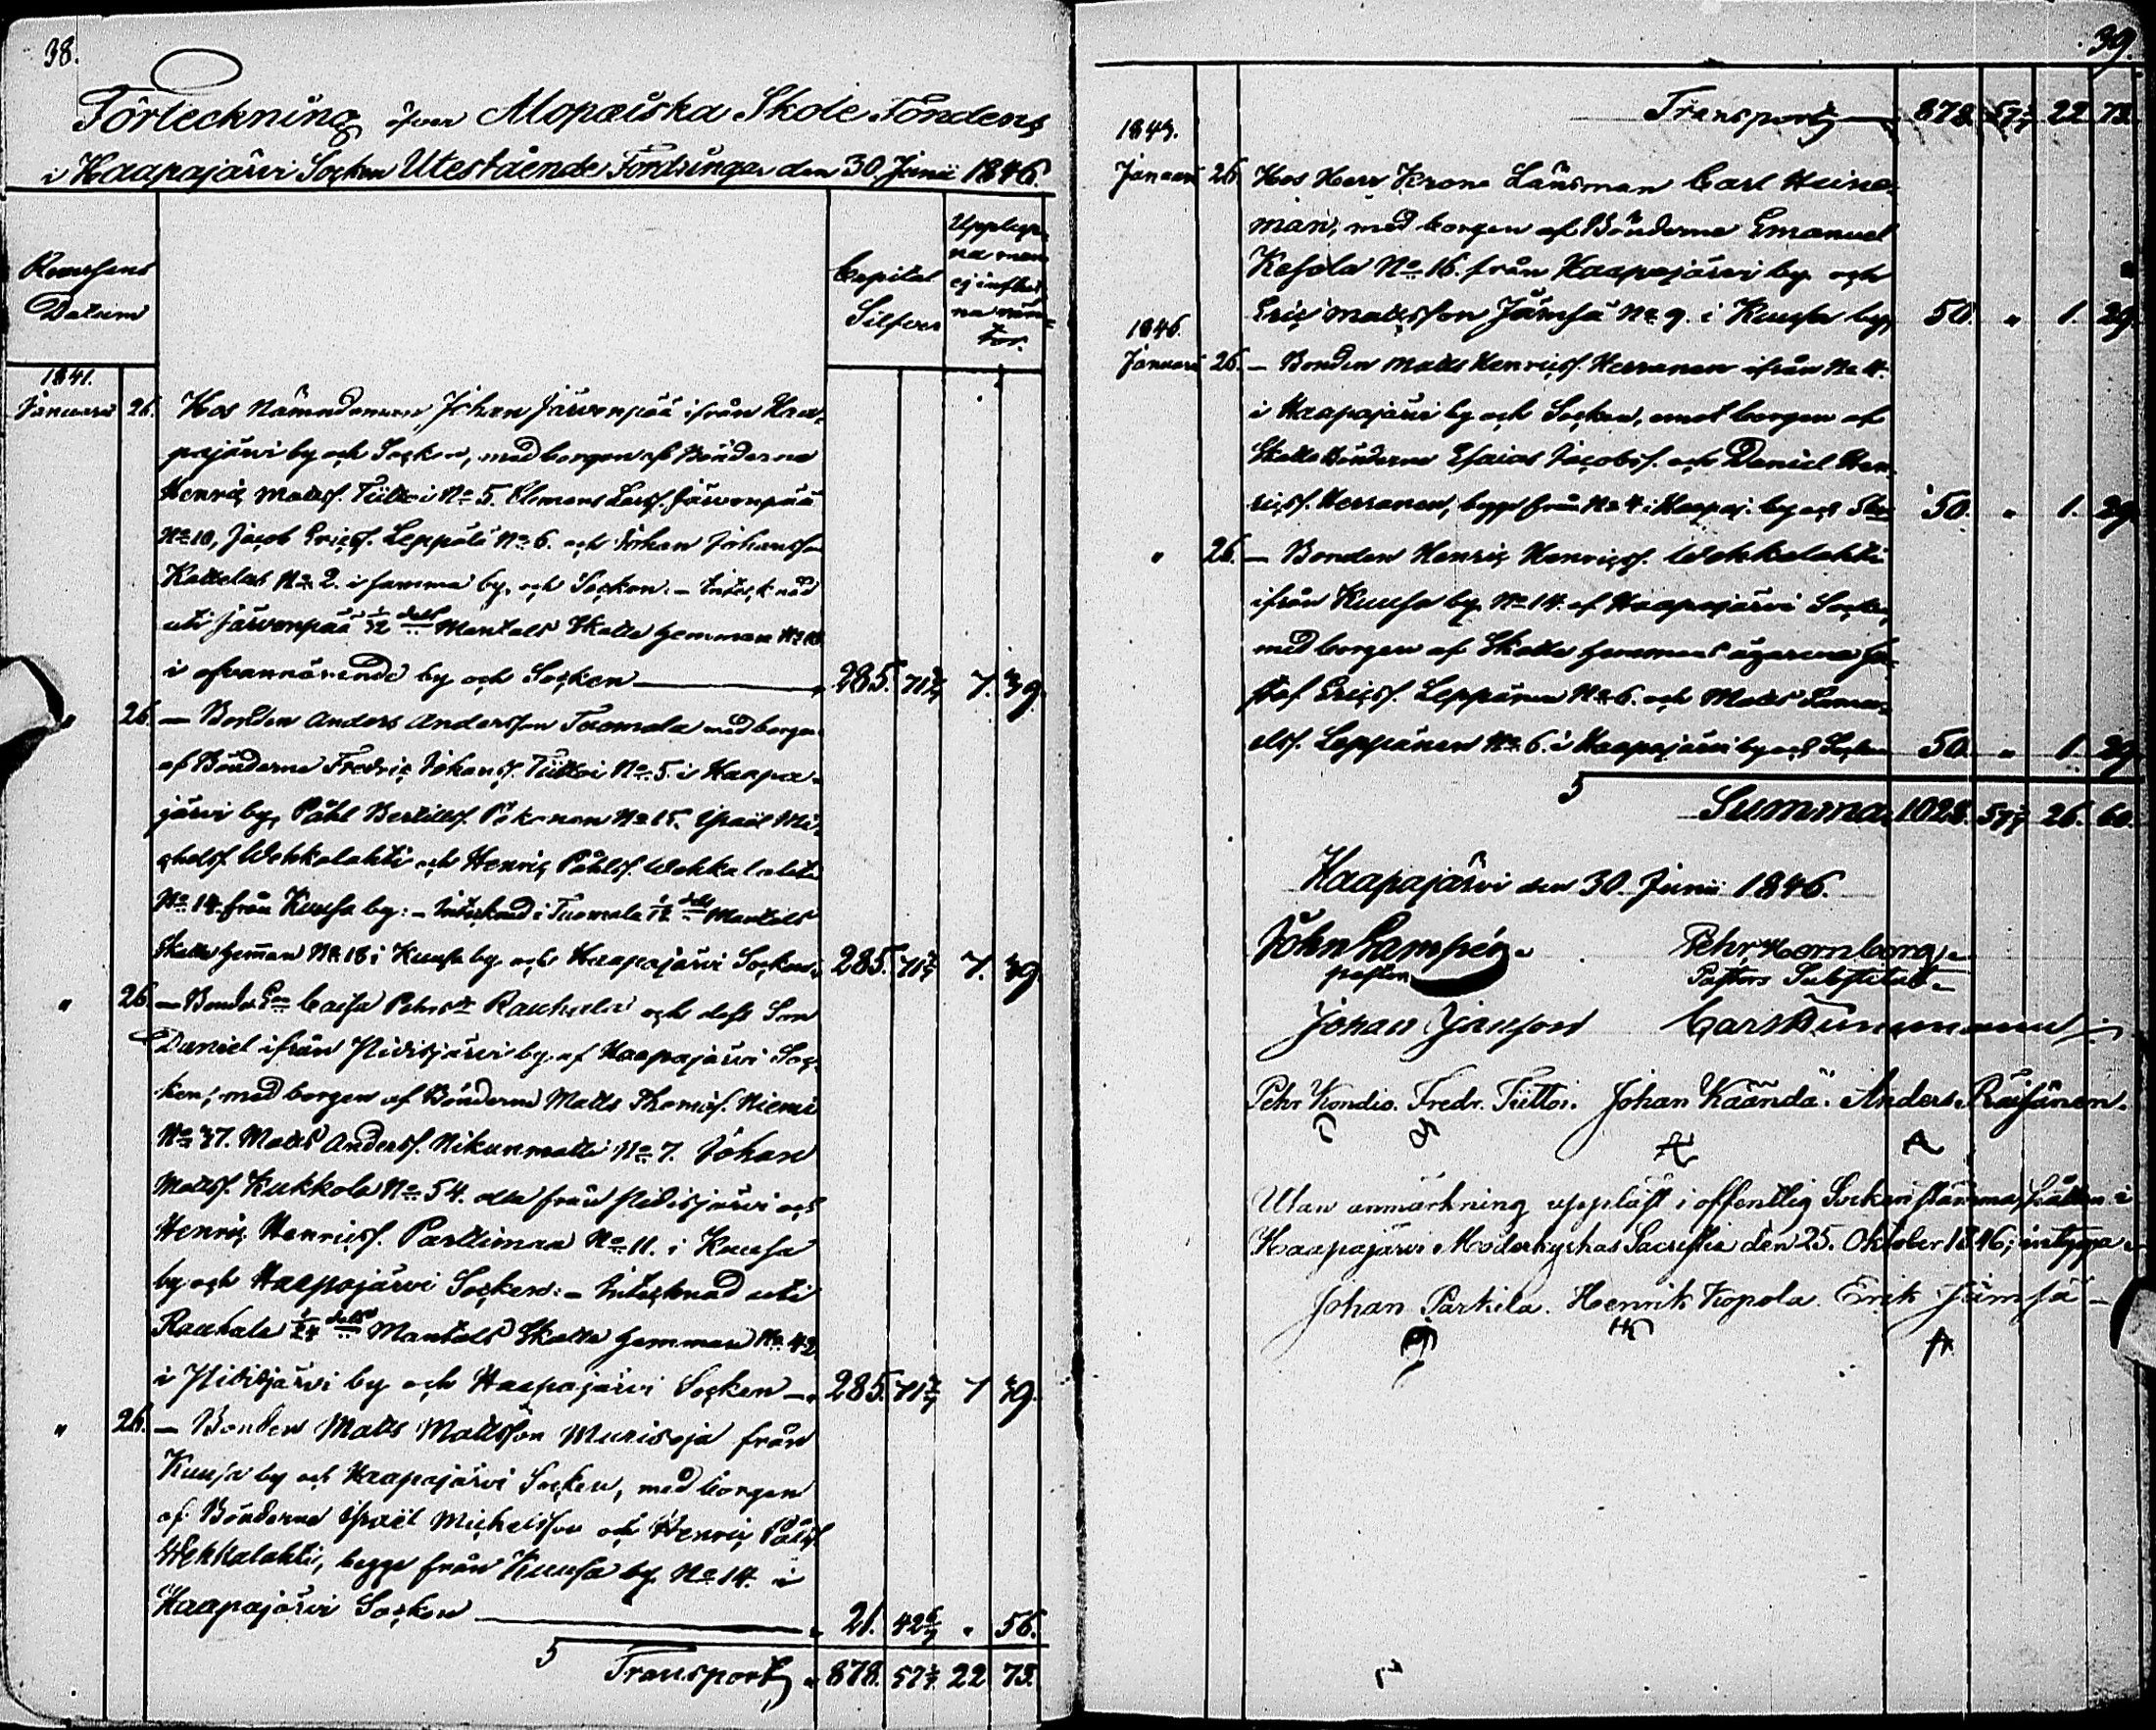 38.
Förteckning öfver Alopæiska Skole Fondens
i Haapajärvi Socken Utestående Fordringar den 30 Junii 1846.
Reversens Datum
Capital Silfver
Upplupna men ej influtna räntor.
1841.
Januarii 26. Hos Nämndeman Johan Järvenpää ifrån Haa-
pajärvi by och Socken, med borgen af Bönderne
Henric Matss. Tiitto i No 5. Clemens Larss. Järvenpää
No 10, Jacob Ericss. Leppälä No 6. och Johan Johansson
Kattelus No 2. i samma by och Socken. - Intecknad
uti Järvenpää 1/12 dels Mantals Skatte hemman No 10.
i ofvannämnde by och Socken 285. 71 3/7 7. 39.
" 26. — Bonden Anders Andersson Tuomala med borgen
af Bönderne Fredric Johanss. Tiittoi No 5. i Haapa-
järvi by, Påhl Bertilss. Pokonen No 15. Israël Mi-
chelss. Wehkalahti och Henric Påhlss. Wehkalahti
No 14. från Kuusa by: - Intecknad i Tuomala 1/12 dels Mantals
Skatte heman No 18 i Kuusa by och Haapajärvi Socken 285. 71 3/7 7. 39.
" 26. — Bonde Caisa Pehrsdr Rauhala och dess Son
Daniel ifrån Pidisjärvi by af Haapajärvi Soc-
ken, med borgen af Bönderne Matts Thomæss. Niemi
No 37. Matts Anderss. Nikunmatti No 7. Johan
Matss. Kukkola No 54. alla från Pidisjärvi och
Henric Henricss. Parttimaa No 11. i Kuusa
by och Haapajärvi Socken: - Intecknad uti
Rauhala 1/24 dels Mantals Skatte hemman No 42
i Pidisjärvi by och Haapajärvi Socken — 285. 71 3/7 7 39.
" 26. — Bonden Matts Mattsson Murisoja från
Kuusa by och Haapajärvi Socken, med borgen
af Bönderne Israël Michelsson och Henric Påhlss.
Wehkalahti, begge från Kuusa by No 14. i
Haapajärvi Socken 21. 42 6/7 " 56.
Transport 878. 57 1/7 22 73.
39.
Transport 878. 57 1/7 22 73.
1843.
Januarii 26. Hos Herr Krono Länsman Carl Heine-
man, med borgen af Bönderne Emanuel
Kesola No 16. från Haapajärvi by och
Eric Mattsson Jämsä No 9. i Kuusa by 50. " 1. 29.
1846.
Januarii 26. — Bonden Matts Henricss. Herranen ifrån No 4.
i Haapajärvi by och Socken, emot borgen af
Skatte Bönderne Esaias Jacobss. och Daniel Hen-
ricss. Herranen, begge från No 4 i Haapaj. by och 50. " 1. 29
" 26. — Bonden Henric Henricss. Wehkalahti
ifrån Kuusa by No 14. af Haapajärvi Socken,
med borgen af Skatte hemmans ägarena Jo-
sef Ericss. Leppänen No 6. och Matts Samu-
elss. Leppänen No 6. i Haapajärvi by och Socken 50. " 1. 29.
Summa 1028. 57 1/7 26. 60.
Haapajärvi den 30. Junii 1846.
John Lampén.
pastor
Pehr Hornborg.
Pastors Substitut.
Johan Janson
Pehr Kondio. Fredr. Tiittoi. Johan Käändä. Anders Räisänen.
Utan anmärkning uppläst i offentlig Sockenstämma, hållen i
Haapajärvi Moderkyrkas Sacristia den 25. Oktober 1846; intyga
Johan Parkila. Henrik Kopola. Erik Jämsä